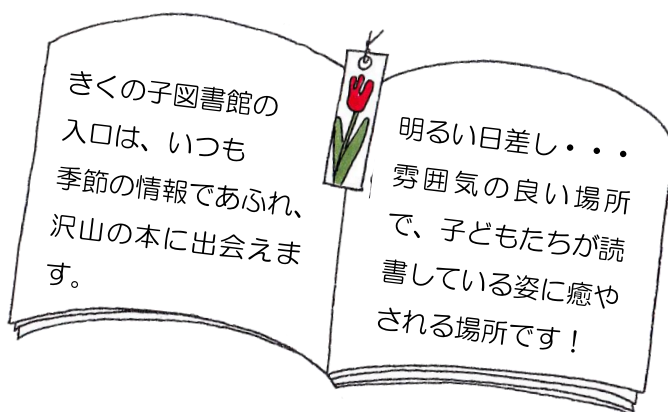 きくの子図書館の
入口は、いつも
季節の情報であふれ、
沢山の本に出会えま
す。
明るい日差し・・・
雰囲気の良い場所
で、子どもたちが読
書している姿に癒や
される場所です！